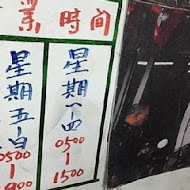 業時間
星期一~四
0500
~
1500
星期五~日
0500
~
900